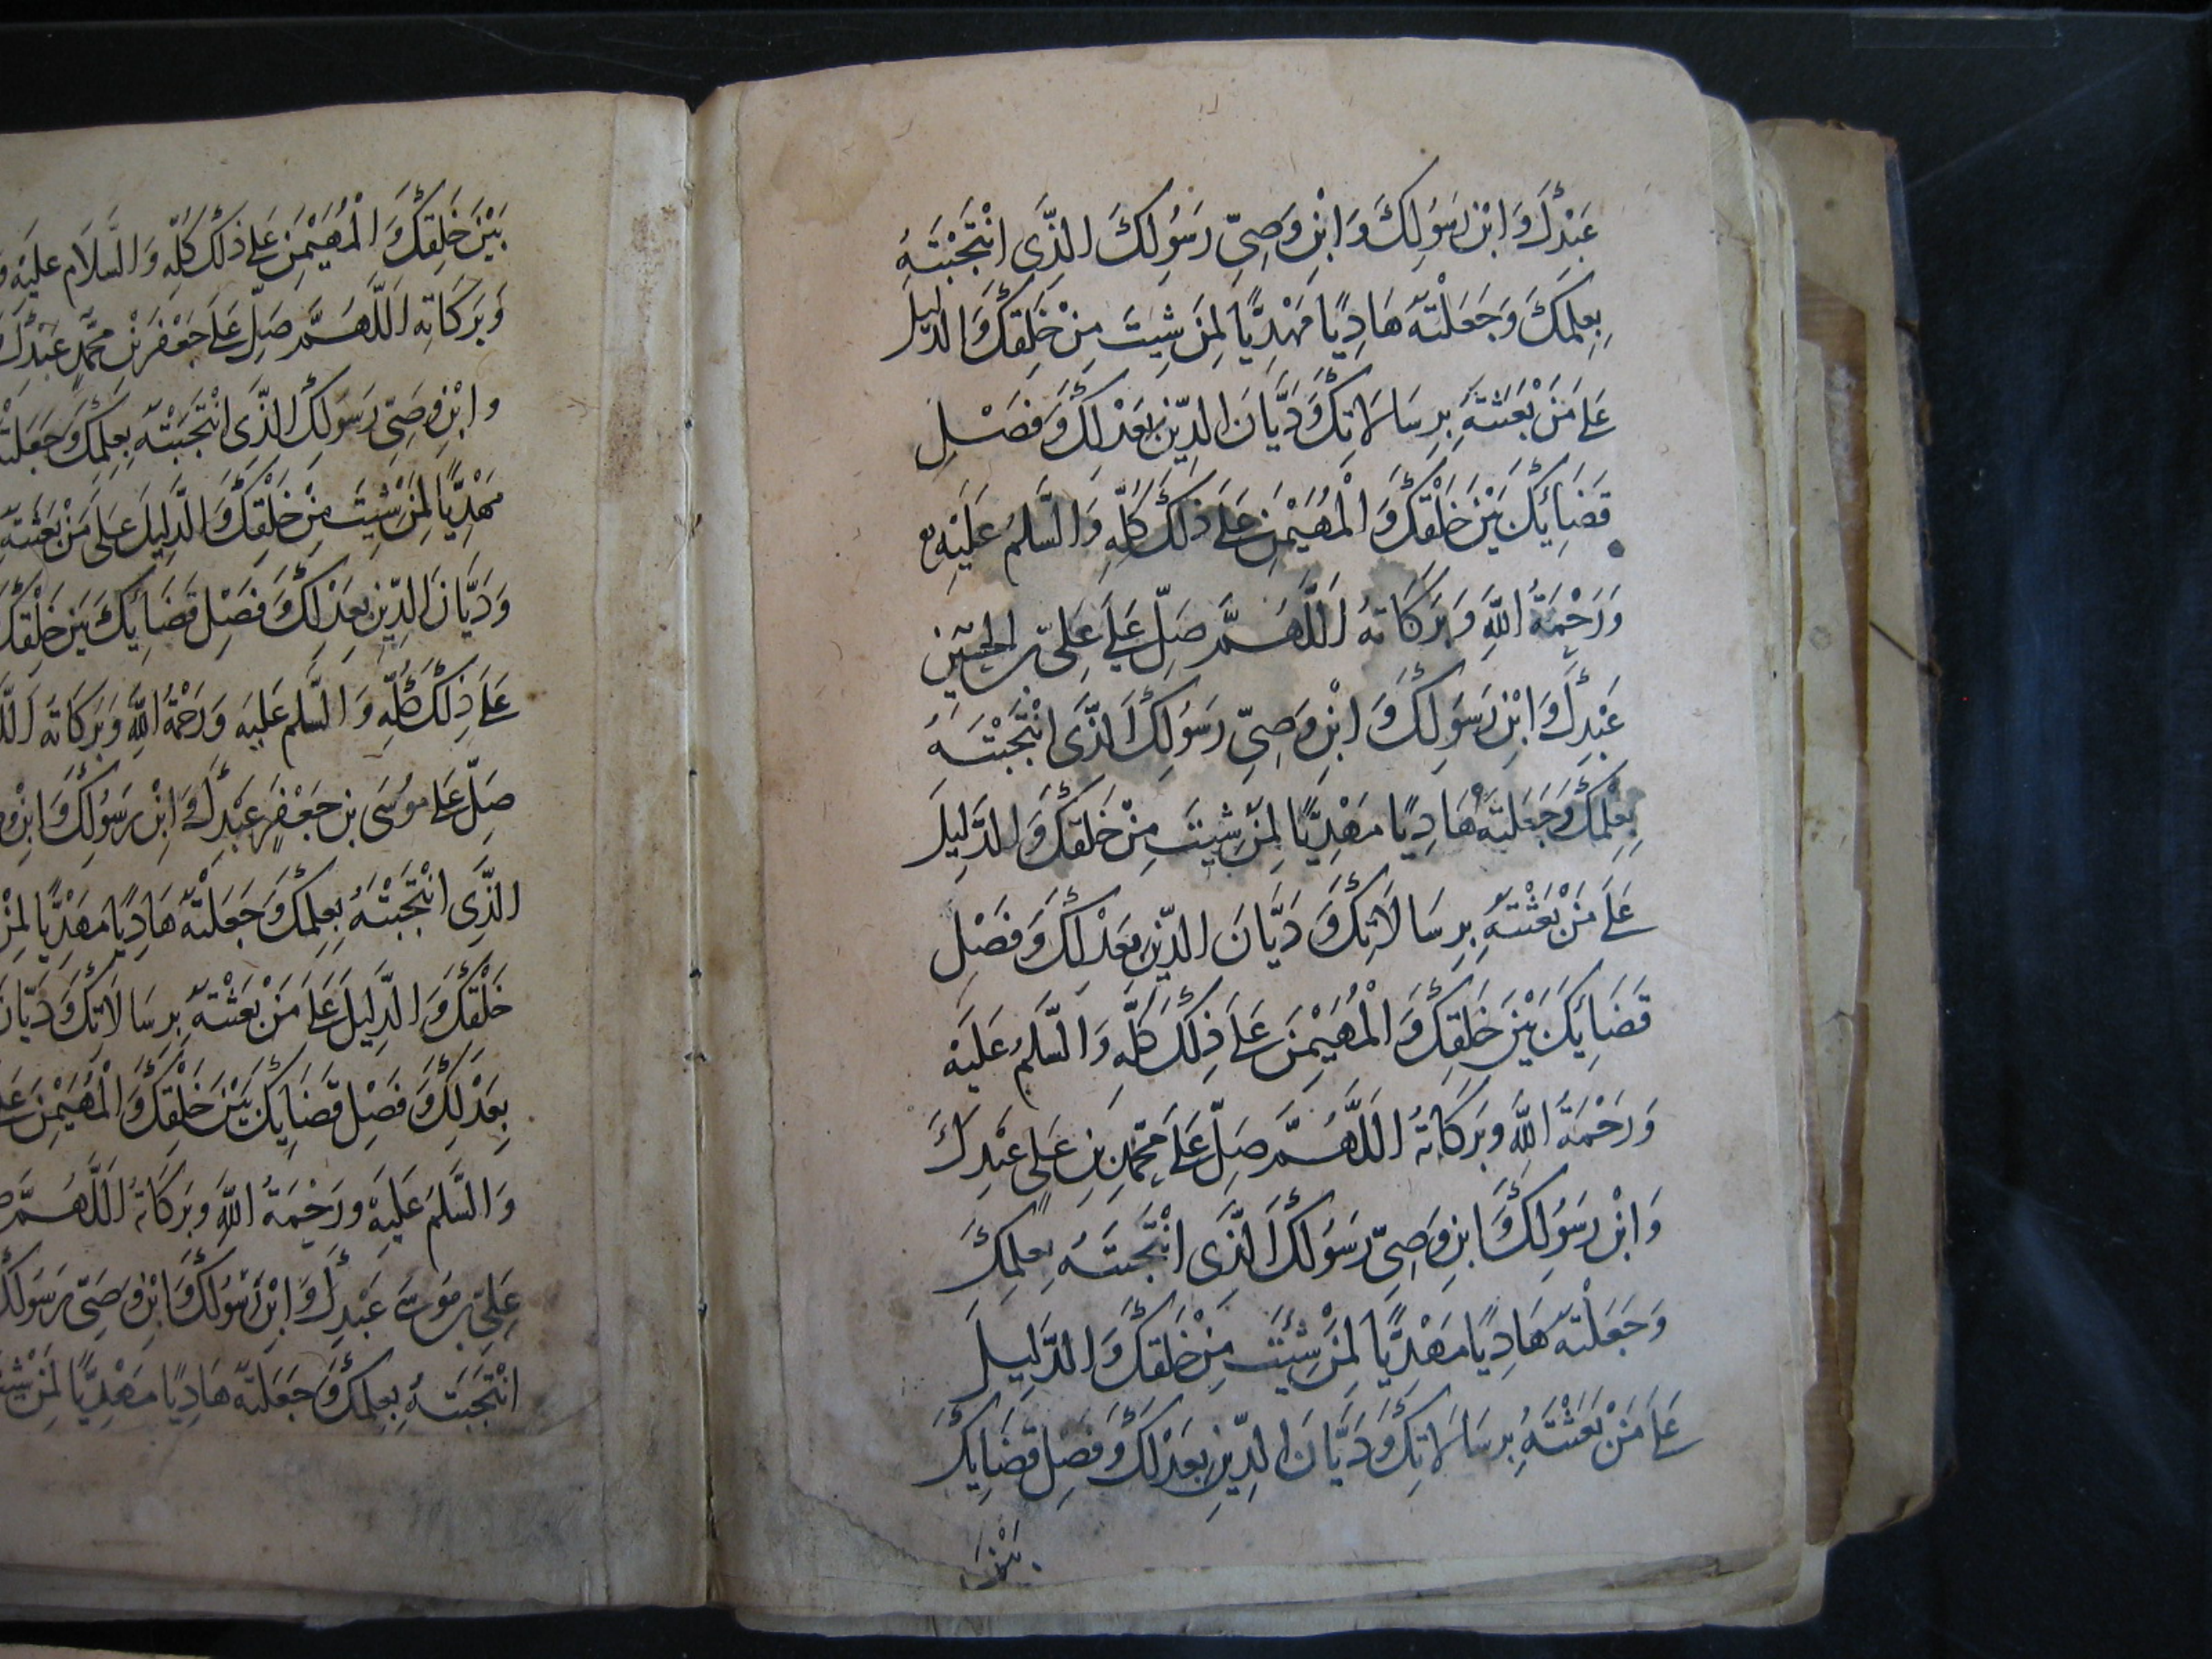 عَبْدِكَ وَابْنِ رَسُولِكَ وَابْنِ وَصِيِّ رَسُولِكَ الَّذِي انْتَجَبْتَهُ
بِعِلْمِكَ وَجَعَلْتَهُ هَادِيًا مَهْدِيًّا لِمَنْ شِيتَ مِنْ خَلْقِكَ وَالدَّلِيلَ
عَلَى مَنْ بَعَثْتَهُ بِرِسَالَاتِكَ وَدَيَّانَ الدِّينِ بِعَدْلِكَ وَفَصْلِ
قَضَايِكَ بَيْنَ خَلْقِكَ وَالْمُهَيْمِنَ عَلَى ذَلِكَ كُلِّهِ وَالسَّلَمُ عَلَيْهِ
وَرَحْمَةُ اللَّهِ وَبَرَكَاتهُ اَللَّهُمَّ صَلِّ عَلَى عَلِيِّ بن الحُسَيْنِ
عَبْدِكَ وَابْنِ رَسُولِكَ وَابْنِ وَصِيِّ رَسُولِكَ الَّذِي انْتَجَبْتَهُ
بِعِلْمِكَ وَجَعَلْتَهُ هَادِيًا مَهْدِيًّا لِمَنْ شِيتَ مِنْ خَلْقِكَ وَالدَّلِيلَ
عَلَى مَنْ بَعَثْتَهُ بِرِسَالَاتِكَ وَدَيَّانَ الدِّينِ بِعَدْلِكَ وَفَصْلِ
قَضَايِكَ بَيْنَ خَلْقِكَ وَالْمُهَيْمِنَ عَلَى ذَلِكَ كُلِّهِ وَالسَّلَمُ عَلَيْهِ
وَرَحْمَةُ اللَّهِ وَبَرَكَاتهُ اَللَّهُمَّ صَلِّ عَلَى مُحَمَّدِ بْنِ عَلِي عَبْدِكَ
وَابْنِ رَسُولِكَ وَابْنِ وَصِيِّ رَسُولِكَ الَّذِي انْتَجَبْتَهُ بِعِلْمِكَ
وَجَعَلْتَهُ هَادِيًا مَهْدِيًّا لِمَنْ شِئْتَ مِنْ خَلْقِكَ وَالدَّلِيلَ
عَلَى مَنْ بَعَثْتَهُ بِرِسَالَاتِكَ وَدَيَّانَ الدِّينِ بِعَدْلِكَ وَفَصْلِ قَضَايِكَ
بَيْنَ
بَيْنَ خَلْقِكَ وَالْمُهَيْمِنَ عَلَى ذَلِكَ كُلِّهِ وَالسَّلَام عَلَيْهِ
وَبَرَكَاتِهِ اَللَّهُمَّ صَلِّ عَلَى جَعْفَرِ بْنِ مُحَمَّدٍ عَبْدِكَ
وابْنِ وَصِيِّ رَسُولِكَ الَّذِي انْتَجَبْتَهُ بِعِلْمِكَ وَجَعَلْتَهُ
مَهْدِيًّا لِمَنْ شِيتَ مِنْ خَلْقِكَ وَالدَّلِيلَ عَلَى مَنْ بَعَثْتَهُ
وَدَيَّانَ الدِّينِ بِعَدْلِكَ وَفَصْلِ قَضَايِكَ بَيْنَ خَلْقِكَ
عَلَى ذَلِكَ كُلِّهِ وَالسَّلَم عَلَيْهِ وَرَحْمَةُ اللَّهِ وَبَرَكَاتهُ
صَلِّ عَلَى مُوسَى بنِ جَعْفَرٍ عَبْدِكَ وَابْنِ رَسُولِكَ وَابْنِ
الَّذِي انْتَجَبْتَهُ بِعِلْمِكَ وَجَعَلْتَهُ هَادِيًا مَهْدِيًّا لِمَنْ
خَلْقِكَ وَالدَّلِيلَ عَلَى مَنْ بَعَثْتَهُ بِرِسَالَاتِكَ وَدَيَّانَ
بِعَدْلِكَ وَفَصْلِ قَضَايِكَ بَيْنَ خَلْقِكَ وَالْمُهَيْمِنَ
وَالسَّلَمُ عَلَيْهِ وَرَحْمَةُ اللَّهِ وَبَرَكَاتهُ اَللَّهُمَّ
عَلِيِّ بن مُوسَى عَبْدِكَ وَابْنِ رَسُولِكَ وَابْنِ وَصِيِّ رَسُولِكَ
انْتَجَبْتَهُ بِعِلْمِكَ وَجَعَلْتَهُ هَادِيًا مَهْدِيًّا لِمَنْ شِيتَ